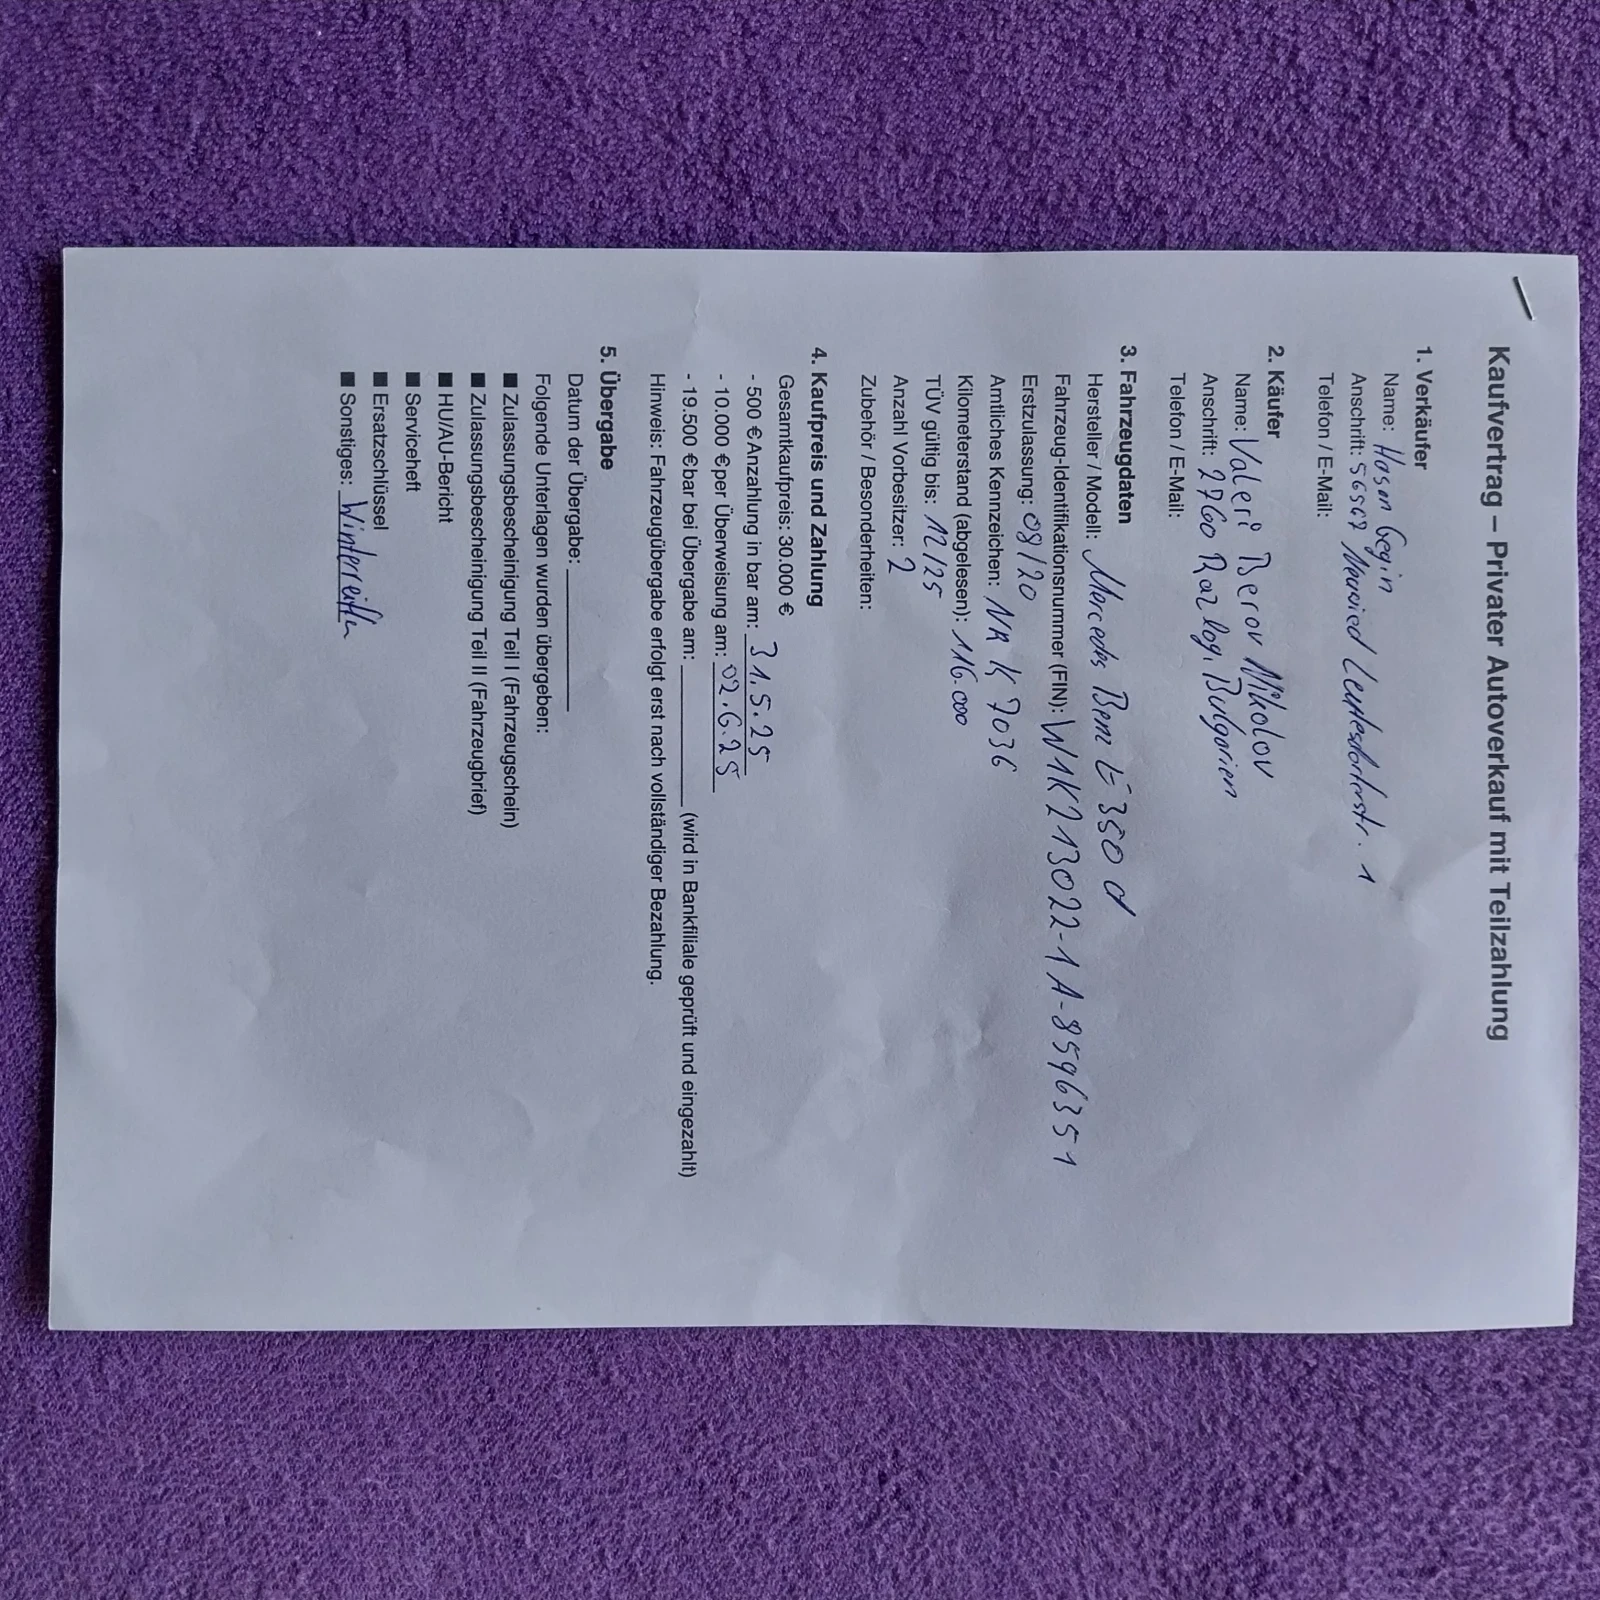 Kaufvertrag – Privater Autoverkauf mit Teilzahlung
1. Verkäufer
Name: Hasan Gegin
Anschrift: 56567 Neuwied Leutesdorferstr. 1
Telefon / E-Mail:
2. Käufer
Name: Valeri Berov Nikolov
Anschrift: 2760 Razlog, Bulgarien
Telefon / E-Mail:
3. Fahrzeugdaten
Hersteller / Modell: Mercedes Benz E 350 d
Fahrzeug-Identifikationsnummer (FIN): W1K213022-1A-8596351
Erstzulassung: 08/20
Amtliches Kennzeichen: NR K 7036
Kilometerstand (abgelesen): 116.000
TÜV gültig bis: 12/25
Anzahl Vorbesitzer: 2
Zubehör / Besonderheiten:
4. Kaufpreis und Zahlung
Gesamtkaufpreis: 30.000 €
- 500 € Anzahlung in bar am: 31.5.25
- 10.000 € per Überweisung am: 02.6.25
- 19.500 € bar bei Übergabe am: ________ (wird in Bankfiliale geprüft und eingezahlt)
Hinweis: Fahrzeugübergabe erfolgt erst nach vollständiger Bezahlung.
5. Übergabe
Datum der Übergabe: ________
Folgende Unterlagen wurden übergeben:
■ Zulassungsbescheinigung Teil I (Fahrzeugschein)
■ Zulassungsbescheinigung Teil II (Fahrzeugbrief)
■ HU/AU-Bericht
■ Serviceheft
■ Ersatzschlüssel
■ Sonstiges: Winterreifen